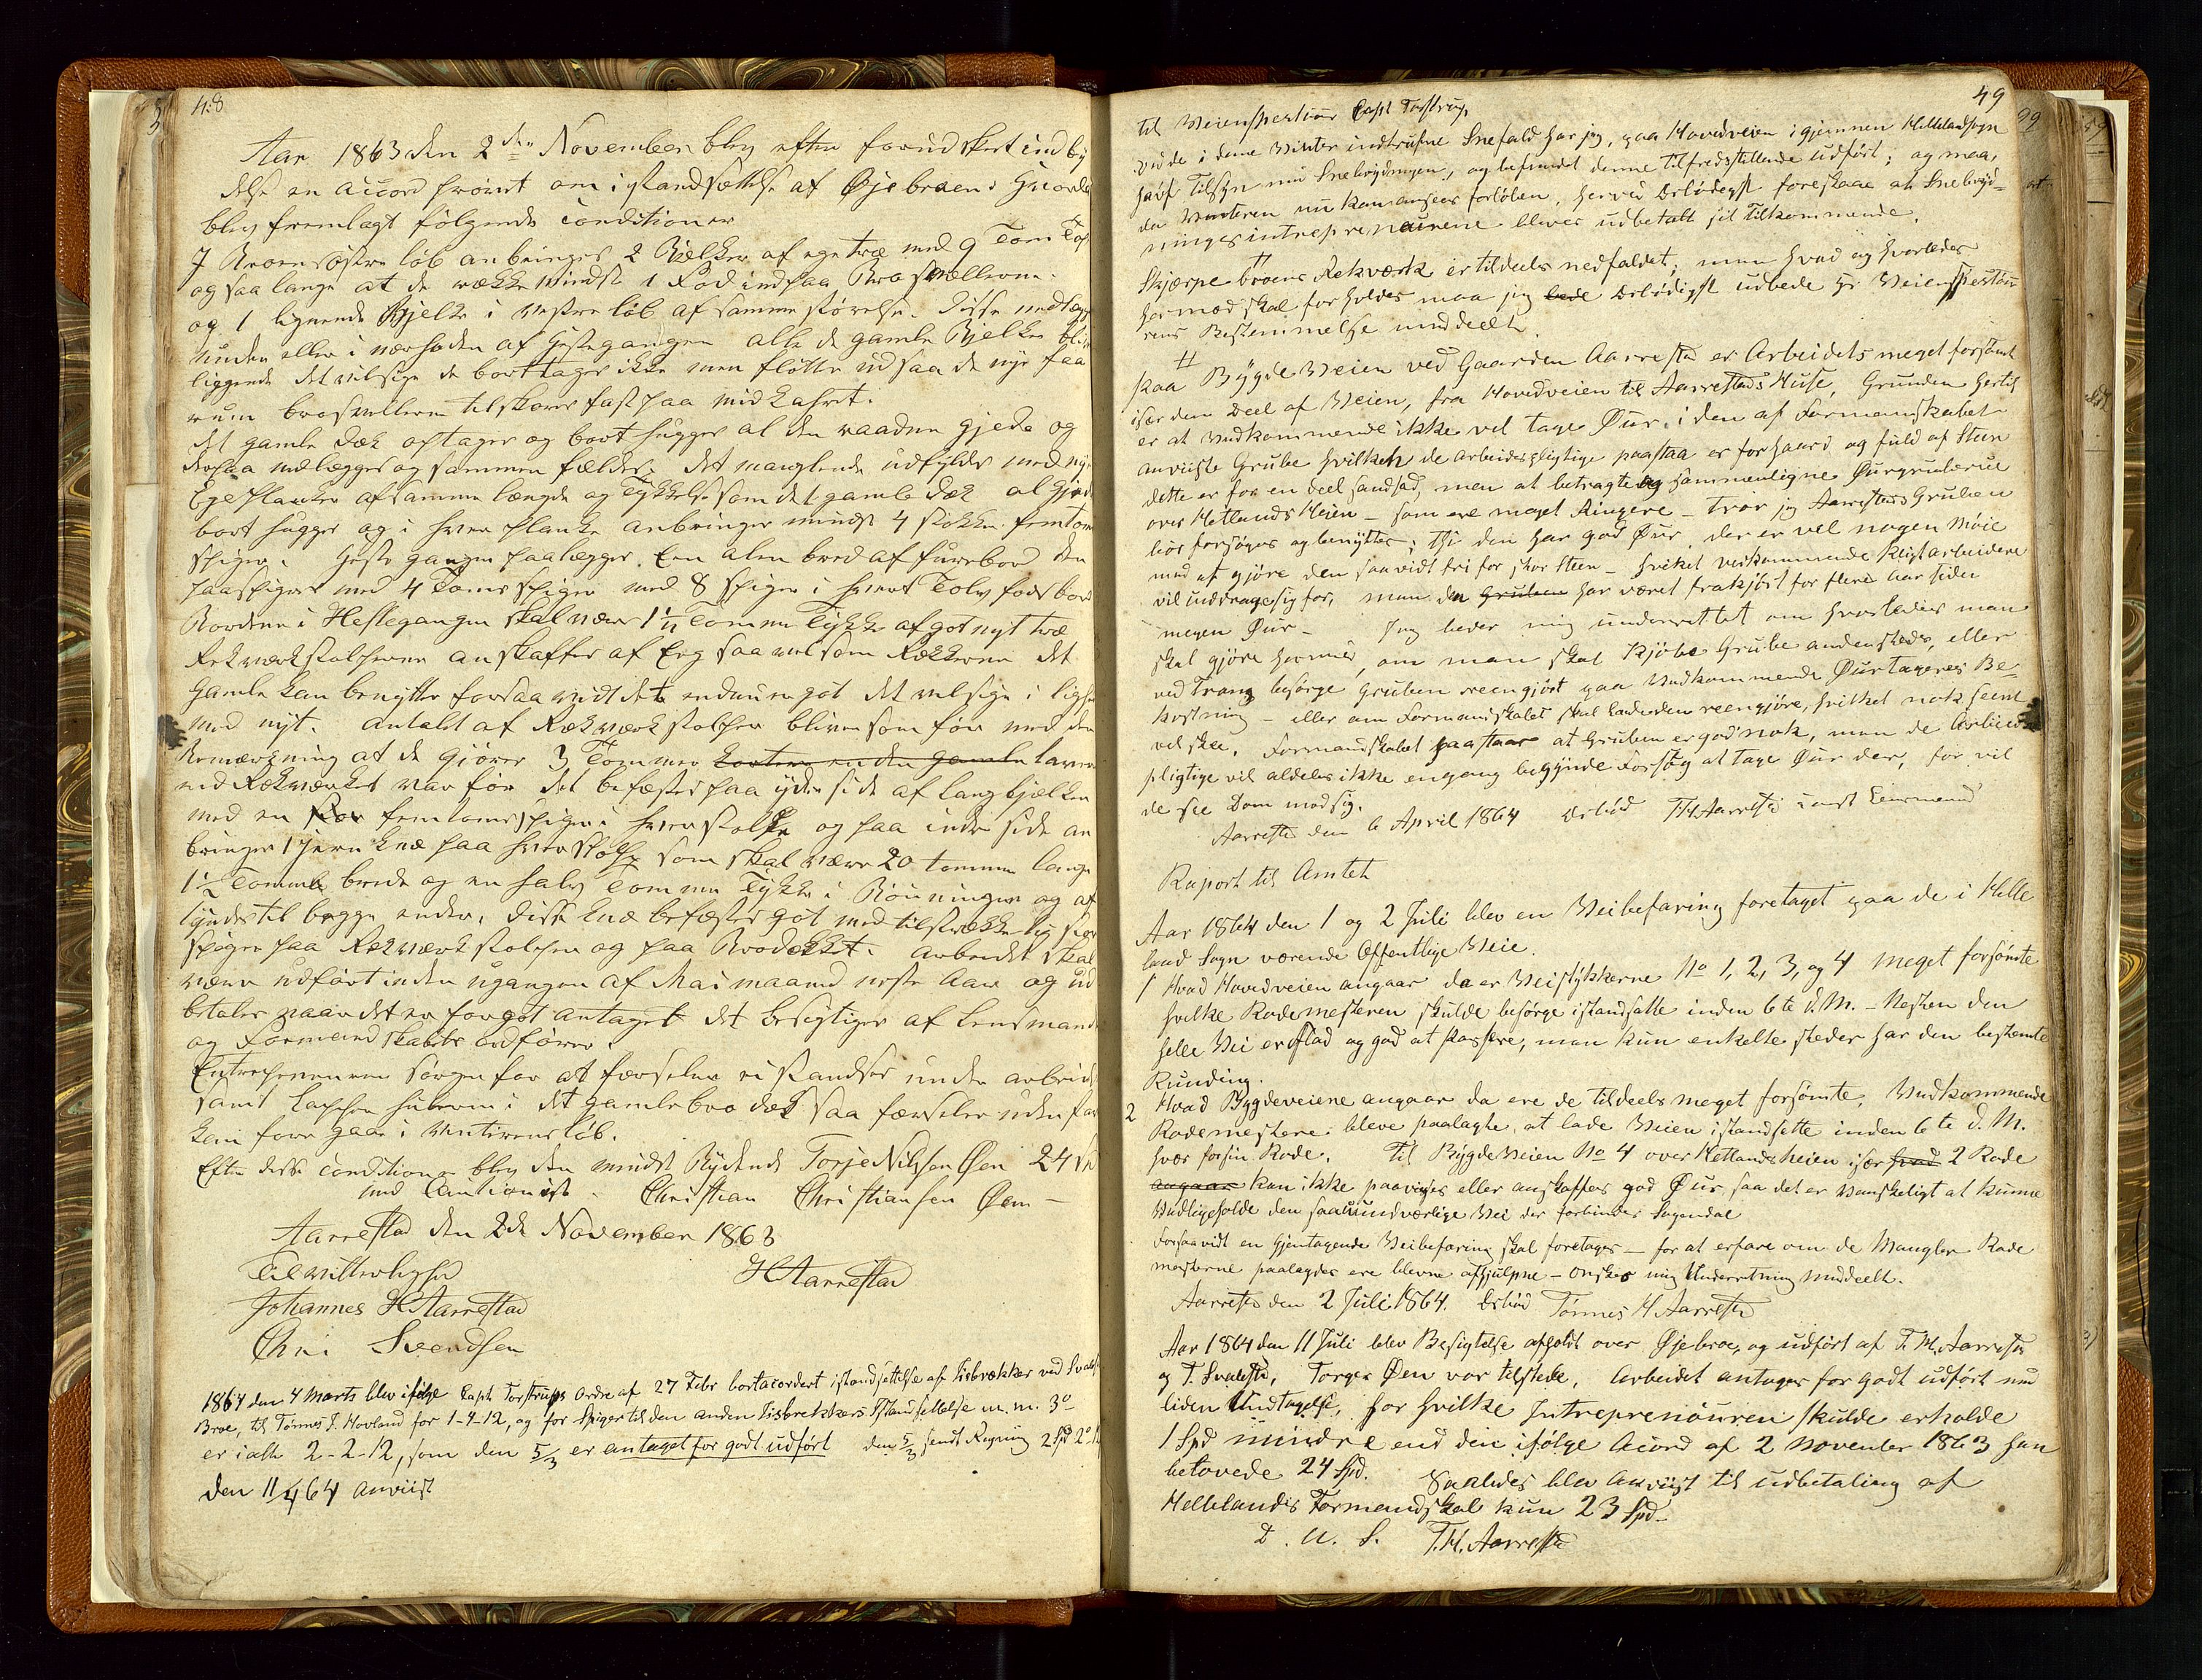 48
Aar 1863 den 2den November blev efter forud skeet indby
delse en accord prøvet om istandsættelse af Øjebroen i Hvorlede
blev fremlagt følgende conditioner
I Broens østre løb anbringes 2 Bjelker af egetræ med 9 Tom Top
og saa lange at de række mindst 1 Fod indpaa Brosvellerne.
og 1 lignende Bjelke i vestre løb af samme størrelse. disse indlægges
under eller i nærheden af Hestegangen alle de gamle Bjelker bliver
liggende det vilsige de borttages ikke men fløtte ud saa de nye faa
rum brosvellerne tilskores fast paa midkahret.
det gamle Dæk optages og bort hugges al den raadne gjede og
derpaa nedlægges og sammen fældes. det manglende udfyldes med nye
Ege Planker af samme længde og Tykkelse som det gamle Dæk al Gjede
bort hugges og i hver planke anbringes mindst 4 stökke femtoms
spiger. Heste gangen paalægges. Een alen bred af furebord den
paaspigres med 4 Toms spiger med 8 spiger i hvert Tolv fods bord
Bordene i Hestegangen skal være 1½ Tomme Tykke af got nyt træ
Rekværkstolperne anskaffes af Eeg saa vel som Rækkerne det
Gamle kan benyttes forsaavidt det er endnu er got det vilsige i lighed
med nyt. Antalet af Rekværk stolper bliver som før med den
Bemærkning at de gjøres 3 Tommer kortere enden gamle lavere
end Rekværket var før det befæstes paa ydre side af langbjelken
med en Par femtoms spiger i hver stolpe og paa indre side an
bringes 1 jern knæ paa hver stolpe som skal være 20 tommer lange
1½ Tomme brede og en halv Tomme Tykke i Böiningen og af
tyndes til begge ender, disse knæ befæstes got med tilstrækkelig stor
spiger paa Rekværk stolper og paa Brodækket. Arbeidet skal
være udført inden udgangen af Mai maaned neste Aar og ud
betales naar det er for got antaget det besigtiges af Lensmand
og Formandskabets ordfører.
Entreprenneuren sørger for at færselen ei standses under arbeidet
samt lapper hullerne i det gamle bro dæk saa færselen uden fare
kan fore gaa i Vinterens løb.
Efter disse conditioner blev den mindst Bydende Torje Nilsen Øen 24 Sp
med Cautionist. Christian Christiansen Øen —
Aarrestad den 2de November 1863
Til vitterlighed
H Aarrestad
Johannes H Aarrestad
Chri Svendsen
1864 den 4 Marts blev ifølge Capt Torstrups Ordre af 27 Febr bortacordert istandsættelse af Iisbrækker ved Svaals
Broe, til Tönnes T. Hovland for 1-4-12, og for Spiger til den anden Iisbrekkers Istandsettelse m. m. 3o
er ialt 2-2-12, som den 5/3 er antaget for godt udført den 5/3 sendt Regning 2 Spd 2o 12
Den 11/4 64 anviist
49
til Veienspecteur Capt Torstrup
Ved de i denne Vinter indtrufne Snefald har jeg, paa Hovedveien igjennem Hellelandsogn
havt Tilsyn med Snebrydningen, og befundet denne tilfredsstillende udført; og maa,
da Vinteren nu kan ansees forløben, herved Ærbødigst foreslaae at Snebryd=
ningsintreprenørene bliver udbetalt sit Tilkommende.
#
Skjerpe broens Rekværk er tildeels nedfaldet, men hvad og hvorledes
hermed skal forholdes maa jeg bede Ærbødigst udbede Hr Veienspecteu
rens Bestemmelse meddeelt.
#
Paa Bygde Veien ved Gaarden Aarrestad er Arbeidets meget forsømt
iser den Deel af Veien, fra Hovedveien til Aarrestads Huse, Grunden hertil
er at Vedkommende ikke vel tage Øur, i den af Formandskabet
anviiste Grube hvilken de Arbeidspligtige paastaa er forhaard og fuld af Steen
dette er for en deel sandhed, men at betragte og sammenligne Øurgruberne
over Hetlands Heien – som ere meget Ringere – tror jeg Aarrestads Gruben
bør forsøges og benyttes; thi den har god Øur, der er vel nogen Möie
med at gjöre den saavidt fri for stor Steen – hvilket vedkommende Pligtarbeidere
vil unddrage sig for, men den Gruben har været frakjört for flere aar siden
megen Øur – Jeg beder mig underrettet om hvorledes man
skal gjöre hermed, om man skal kjöbe Grube andensteds, eller
ved Trang besørge Gruben reengjört paa Vedkommende Øurtageres Be=
kostning – eller om Formandskabet skal lade den reengjøre, hvilket nok seent
vil skee. Formandskabet paastaar at Gruben er god nok, men de Arbeids
pligtige vil aldeles ikke engang begynde Forsøg at tage Øur der, for vil
de see Dom mod sig.
Aarrestd den 6 April 1864 Ærbød TH Aarrestd const Lensmand
Raport til Amtet
Aar 1864 den 1 og 2 Juli blev en Veibefaring foretaget paa de i Helle
land Sogn værende Offentlige Veie.
1 Hvad Hovedveien angaar da er Veistykkerne No 1, 2, 3, og 4 meget forsømte
hvilke Rodemesteren skulde besørge istandsatte inden 6te d. M. – Resten den
hele Vei er flad og god at Passere, men kun enkelte steder har den bestemte
Runding.
2 Hvad Bygdeveiene angaar da ere de tildeels meget forsømte. Vedkommende
Rodemestere bleve paalagte, at lade Veien istandsette inden 6te d. M.
hver for sin Rode. Til BygdeVeien No 4 over Hetlands heien iser hvad 2 Rode
angaar kan ikke paavises eller anskaffes god Øur, saa det er Vanskeligt at kunne
Vedligeholde den saa uundværlige Vei der forbinder Sogendal
Forsaavidt en Gjentagende Veibefaring skal foretages – for at erfare om de Mangler Rode
mesterne paalagdes ere blevne afhjulpne – ønskes mig Underretning meddeelt.
Aarrestd den 2 Juli 1864. Ærbød Tönnes H Aarrestd
Aar 1864 den 11 Juli blev Besigtelse afholdt over Øjebroe, og udført af T. H. Aarrestd
og T. Svalestd, Torger Øen var tilstede. Arbeidet antages for godt udført med
liden Undtagelse, for hvilke Intreprenöuren skulde erholde
1 Spd mindre end den ifølge Acord af 2 November 1863 han
betovede 24 Spd. Saaledes blev Anviist til udbetaling af
Hellelands Formandskab kun 23 Spd.
D. U. S. T. H. Aarrestd